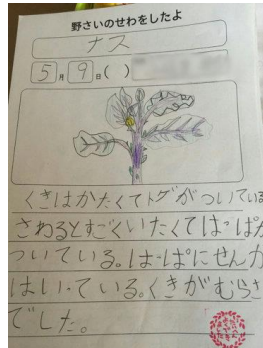 野さいのせわをしたよ
ナス
5月9日( )
くきはかたくてトゲがついている
さわるとすごくいたくてはっぱが
ついている。はっぱにせんが
はいっている。くきがむらさ
でした。